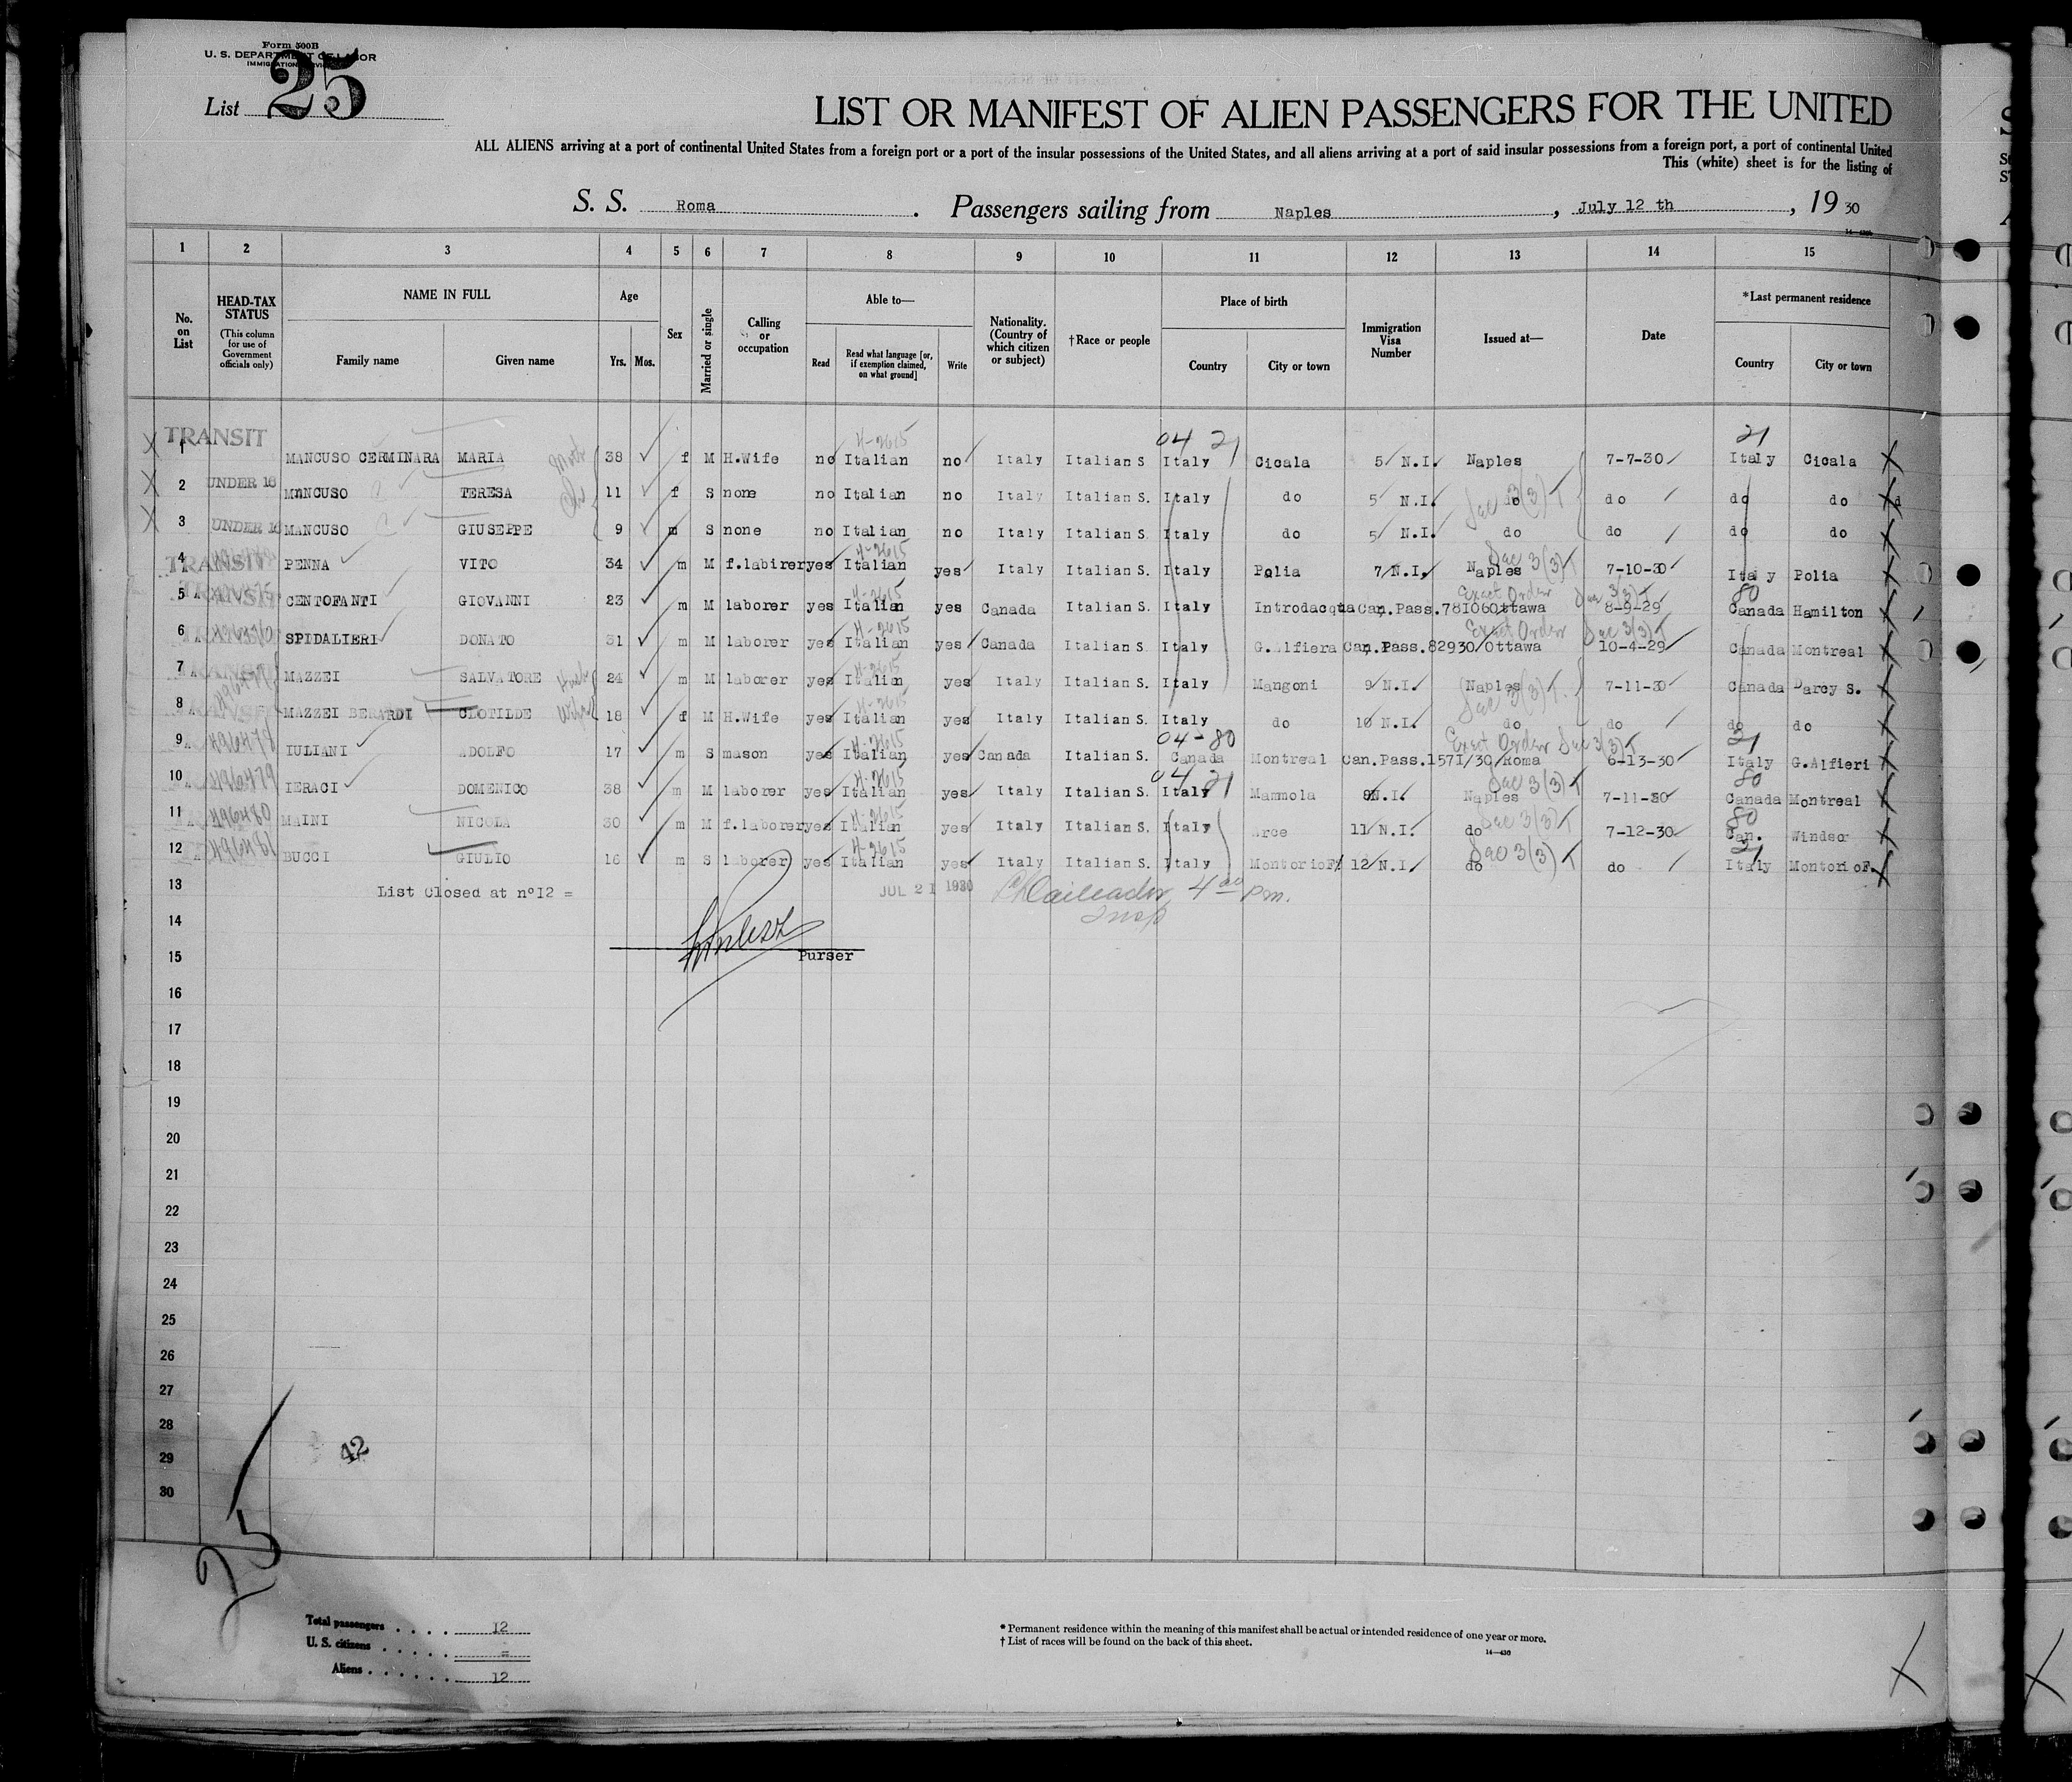 Form 500B
U. S. DEPARTMENT OF LABOR
IMMIGRATION SERVICE
List 25
LIST OR MANIFEST OF ALIEN PASSENGERS FOR THE UNITED
ALL ALIENS arriving at a port of continental United States from a foreign port or a port of the insular possessions of the United States, and all aliens arriving at a port of said insular possessions from a foreign port, a port of continental United
This (white) sheet is for the listing of
S. S. Roma. Passengers sailing from Naples, July 12 th, 19 30
1 2 3 4 5 6 7 8 9 10 11 12 13 14 15
No. on List
HEAD-TAX STATUS (This column for use of Government officials only)
NAME IN FULL Family name Given name
Age Yrs. Mos.
Sex
Married or single
Calling or occupation
Able to— Read Read what language [or, if exemption claimed, on what ground] Write
Nationality. (Country of which citizen or subject)
†Race or people
Place of birth Country City or town
Immigration Visa Number
Issued at—
Date
*Last permanent residence Country City or town
TRANSIT 4-2615 04 21 21
1 MANCUSO CERMINARA MARIA 38 f M H.Wife no Italian no Italy Italian S Italy Cicala 5 N.I. Naples 7-7-30 Italy Cicala
2 UNDER 16 MANCUSO TERESA 11 f S none no Italian no Italy Italian S. Italy do 5 N.I. do do do do
Sec 3(3) T
3 UNDER 16 MANCUSO GIUSEPPE 9 m S none no Italian no Italy Italian S. Italy do 5 N.I. do do do do
4-2615 Sec 3(3) T
4 TRANSIT PENNA VITO 34 m M f.labirer yes Italian yes Italy Italian S. Italy Polia 7 N.I. Naples 7-10-30 Italy Polia
4-2615 Exect Order Sec 3(3) T 80
5 TRANSIT CENTOFANTI GIOVANNI 23 m M laborer yes Italian yes Canada Italian S. Italy Introdacqua Can.Pass.78106 Ottawa 8-9-29 Canada Hamilton
4-2615 Exect Order Sec 3(3) T
6 SPIDALIERI DONATO 31 m M laborer yes Italian yes Canada Italian S. Italy G.Alfiera Can.Pass.82930/Ottawa 10-4-29 Canada Montreal
4-2615
7 TRANSIT MAZZEI SALVATORE 24 m M laborer yes Italian yes Italy Italian S. Italy Mangoni 9 N.I. Naples 7-11-30 Canada Darcy S.
4-2615 Sec 3(3) T.
8 MAZZEI BERARDI CLOTILDE 18 f M H.Wife yes Italian yes Italy Italian S. Italy do 10 N.I. do do do do
4-2615 04-80 Exect Order Sec 3(3) T 21
9 496478 IULIANI ADOLFO 17 m S mason yes Italian yes Canada Italian S. Canada Montreal Can.Pass.1571/30/Roma 6-13-30 Italy G.Alfieri
4-2615 04 21 Sec 3(3) T 80
10 496479 IERACI DOMENICO 38 m M laborer yes Italian yes Italy Italian S. Italy Mammola N.I. Naples 7-11-30 Canada Montreal
4-2615 Sec 3(3) T 80
11 496480 MAINI NICOLA 30 m M f.laborer yes Italian yes Italy Italian S. Italy Arce 11 N.I. do 7-12-30 Can. Windso
4-2615 Sec 3(3) T 21
12 496481 BUCCI GIULIO 16 m S laborer yes Italian yes Italy Italian S. Italy MontorioF. 12 N.I. do do Italy MontorioF.
13 List Closed at n°12 = JUL 21 1930 4 00 pm.
Insp
14
15 Purser
16
17
18
19
20
21
22
23
24
25
26
27
28
29 42
30
25
Total passengers 12
U. S. citizens =
Aliens 12
* Permanent residence within the meaning of this manifest shall be actual or intended residence of one year or more.
† List of races will be found on the back of this sheet.
14—430